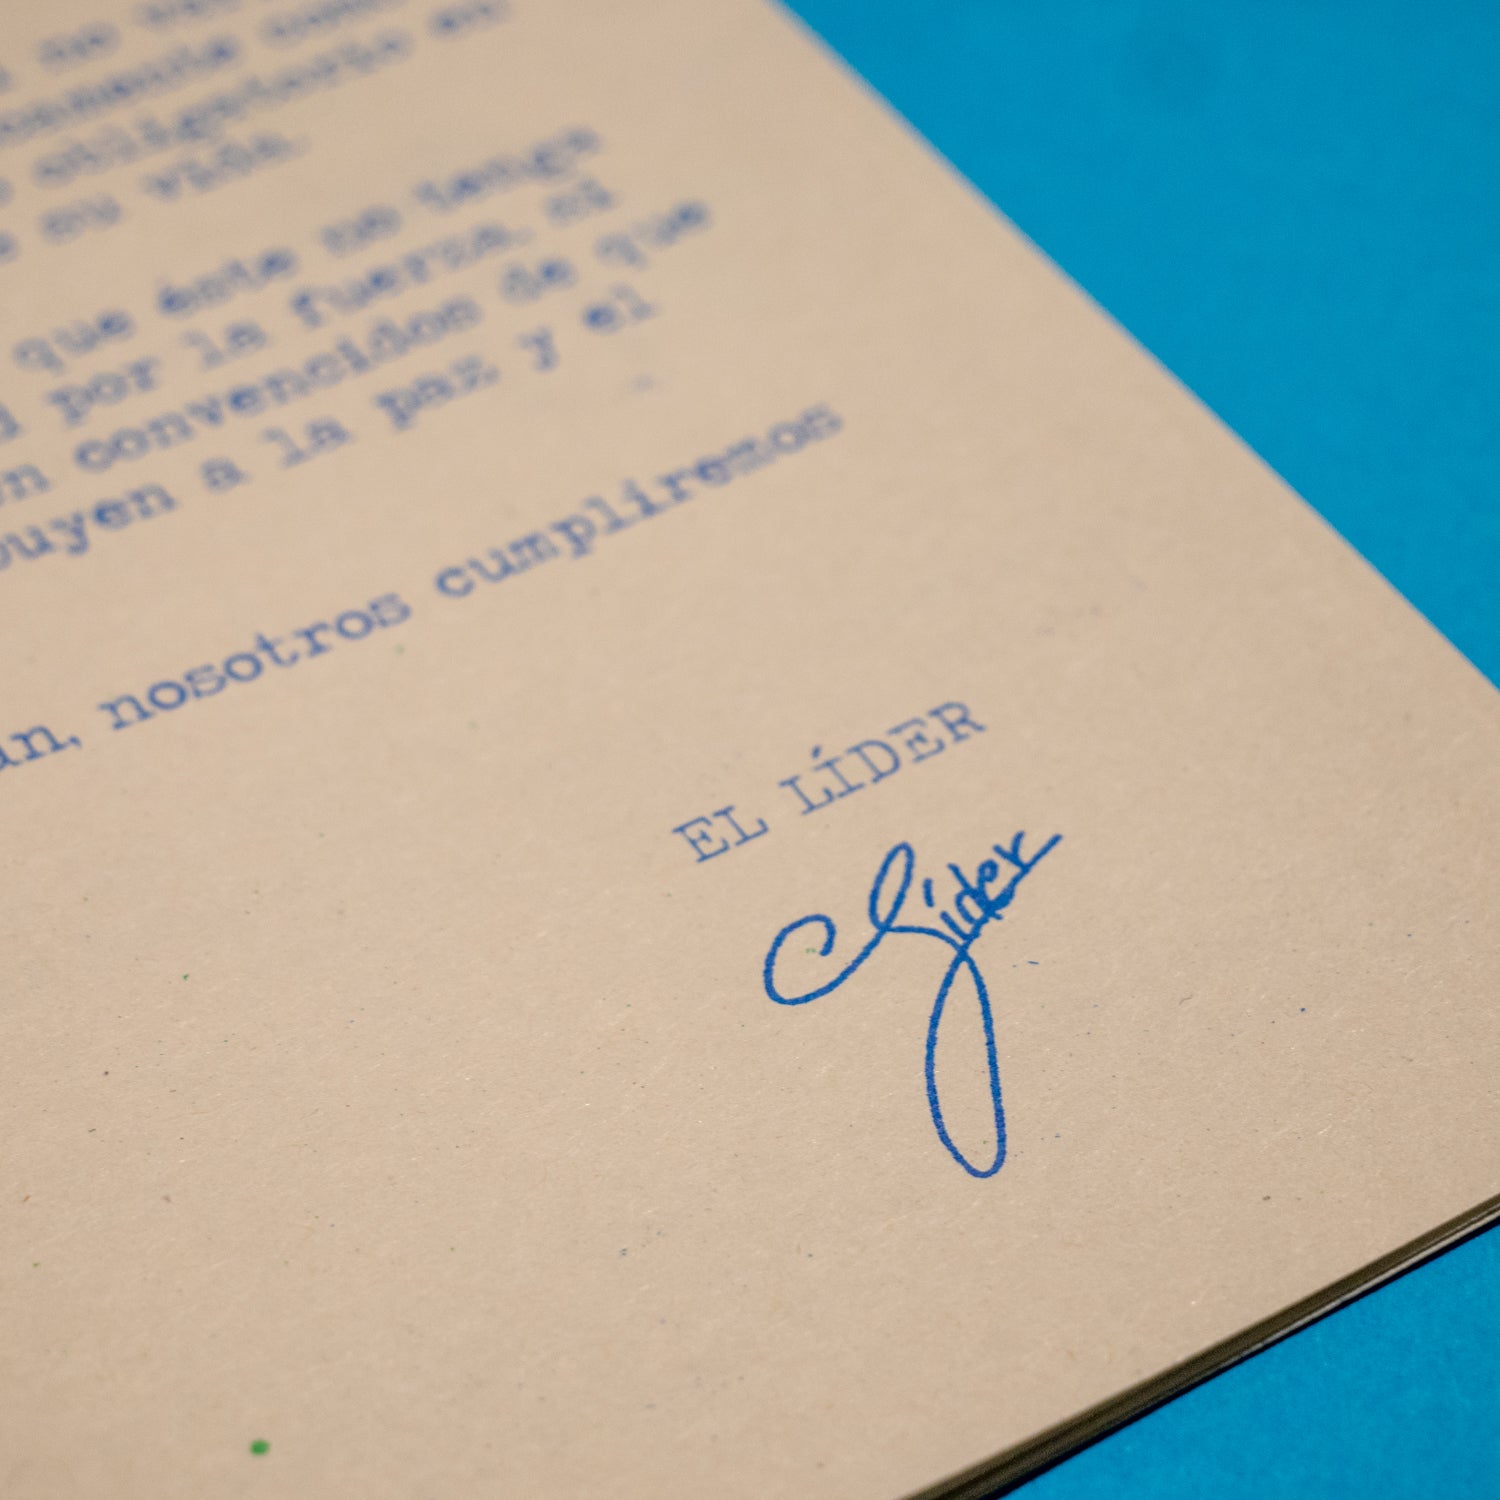 no
obligatorio su
su vida.
que éste no tenga
por la fuerza, ni
convencidos de que
buyen a la paz y el
nosotros cumpliremos
EL LÍDER
Líder